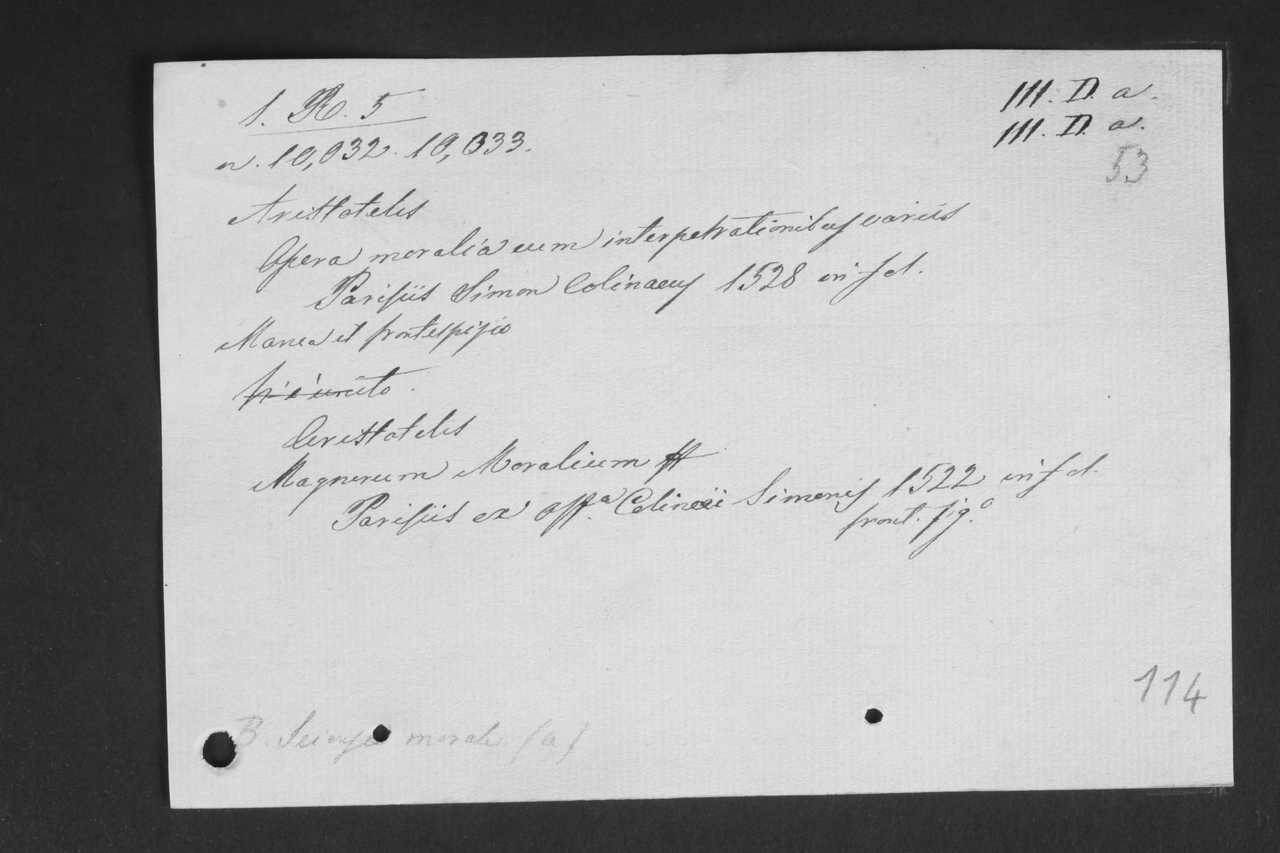 1. R. 5
III. D. a.
n. 10,032. 10,033.
III. D. a.
53
Aristotelis
Opera moralia cum interpetrationibus variis
Parisiis Simon Colinaeus 1528 in fol.
Manca il frontespizio
Vi è unito.
Aristotelis
Magnorum Moralium
Parisiis ex off.a Colinaei Simonis 1522 in fol.
front. fig.o
114
B. Scienze morali (a)